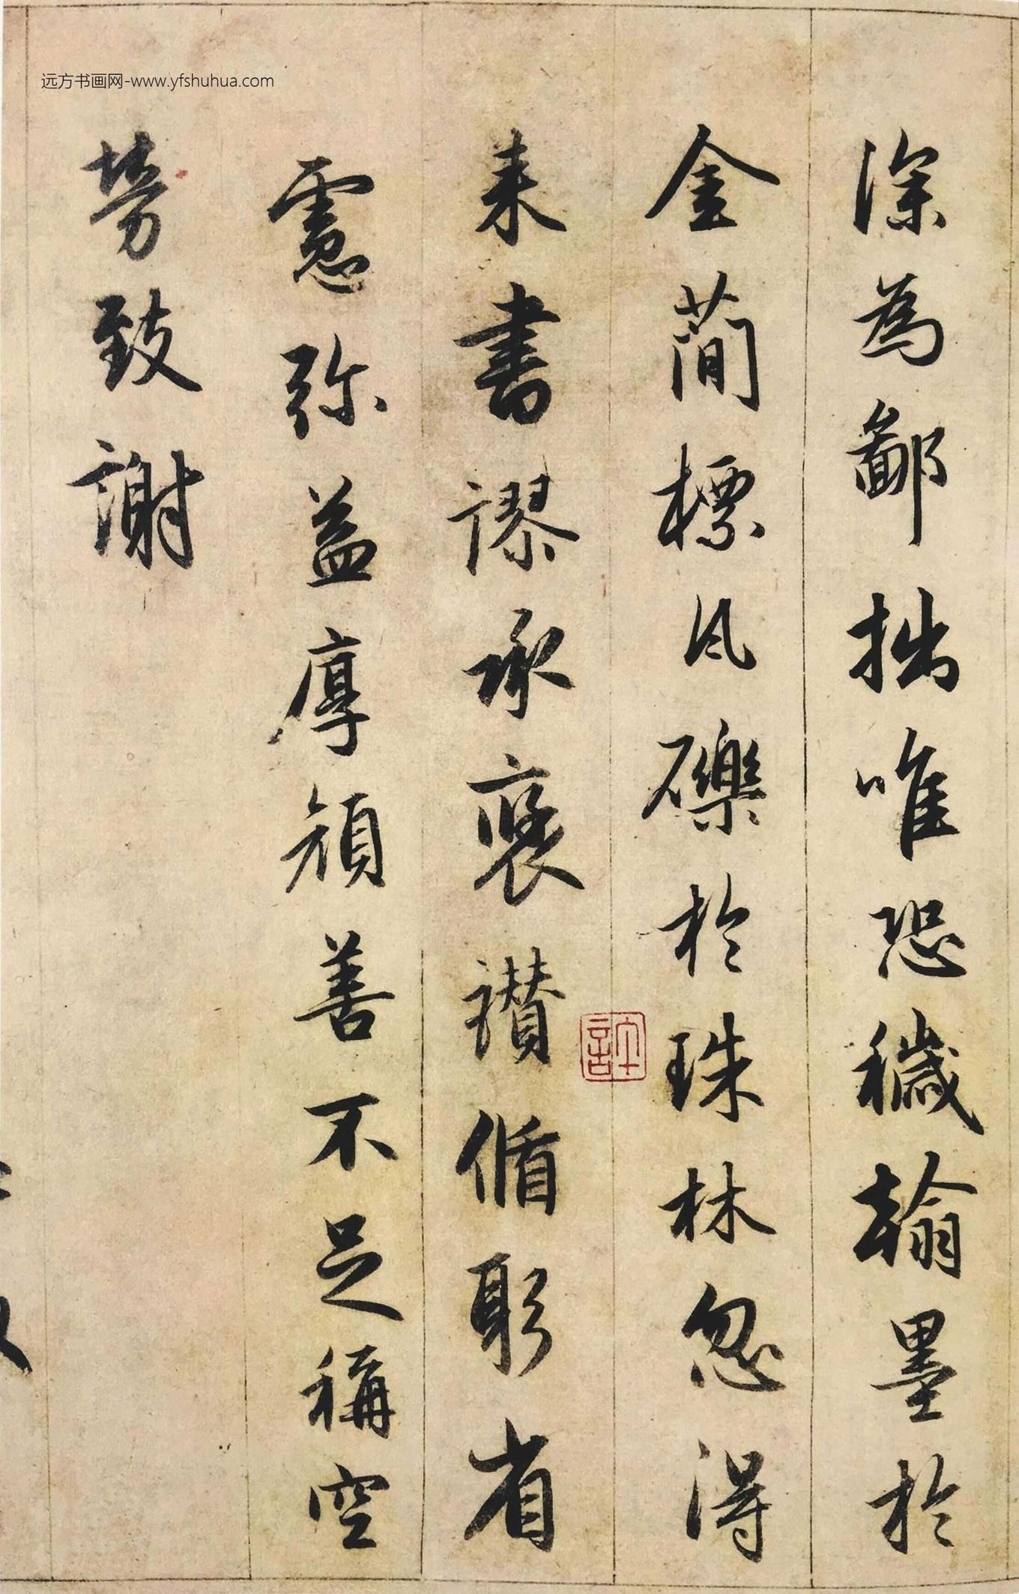 远方书画网-www.yfshuhua.com
深為鄙拙唯恐穢翰墨於
金簡標瓦礫於珠林忽得
来書謬承褒讃循躬省
慮弥益厚顔善不足稱空
勞致謝